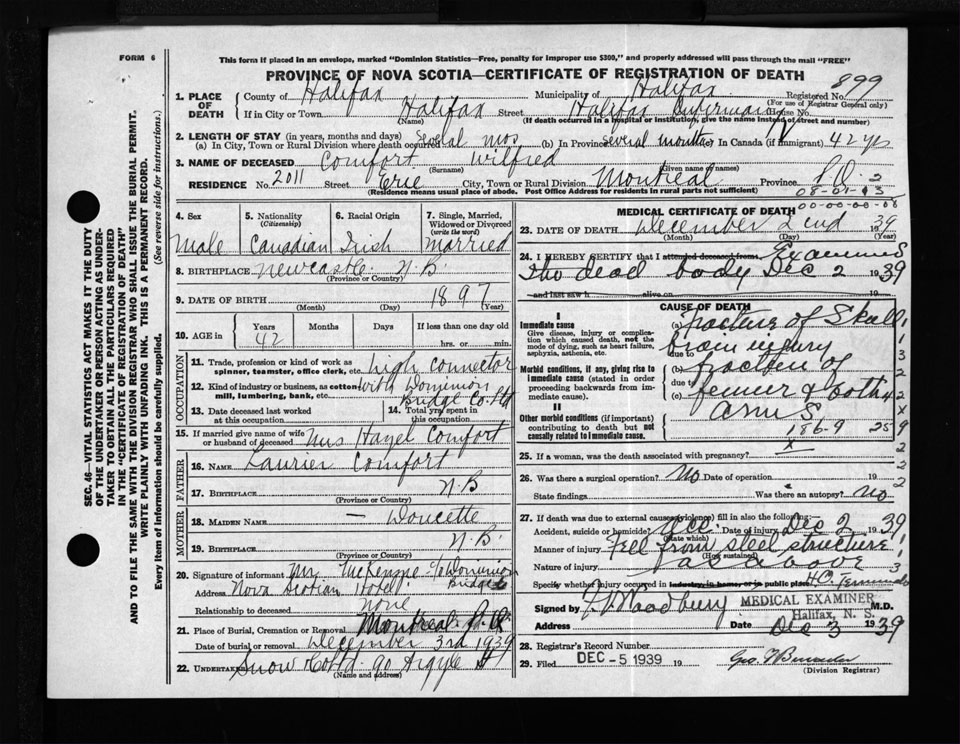 FORM 6
This form if placed in an envelope, marked "Dominion Statistics—Free, penalty for improper use $300," and properly addressed will pass through the mail "FREE"
PROVINCE OF NOVA SCOTIA—CERTIFICATE OF REGISTRATION OF DEATH
SEC. 46—VITAL STATISTICS ACT MAKES IT THE DUTY OF THE UNDERTAKER OR PERSON ACTING AS UNDERTAKER TO OBTAIN ALL THE PARTICULARS REQUIRED IN THE "CERTIFICATE OF REGISTRATION OF DEATH"
AND TO FILE THE SAME WITH THE DIVISION REGISTRAR WHO SHALL ISSUE THE BURIAL PERMIT.
WRITE PLAINLY WITH UNFADING INK. THIS IS A PERMANENT RECORD.
Every item of information should be carefully supplied. (See reverse side for instructions.)
1. PLACE OF DEATH
County of Halifax Municipality of Halifax Registered No. 899
(For use of Registrar General only)
If in City or Town Halifax Street Halifax Infirmary House No.
(Name) (If death occurred in a hospital or institution, give the name instead of street and number)
2. LENGTH OF STAY (in years, months and days)
(a) In City, Town or Rural Division where death occurred Several mos (b) In Province several months (c) In Canada (if immigrant) 42 yrs
3. NAME OF DECEASED Comfort Wilfred
(Surname) (Given name or names)
RESIDENCE No. 2011 Street Erie City, Town or Rural Division Montreal Province P.Q. 2
(Residence means usual place of abode. Post Office Address for residents in rural parts not sufficient) 08-01-13
00-00-00-08
4. Sex Male
5. Nationality (Citizenship) Canadian
6. Racial Origin Irish
7. Single, Married, Widowed or Divorced (write the word) Married
8. BIRTHPLACE Newcastle N.B.
(Province or Country)
9. DATE OF BIRTH 1897
(Month) (Day) (Year)
10. AGE in Years 42 Months Days If less than one day old hrs. or min.
OCCUPATION
11. Trade, profession or kind of work as spinner, teamster, office clerk, etc. high connector
12. Kind of industry or business, as cotton mill, lumbering, bank, etc. with Dominion Bridge Co. Ltd
13. Date deceased last worked at this occupation
14. Total yrs. spent in this occupation
15. If married give name of wife or husband of deceased Mrs Hazel Comfort
FATHER
16. NAME Laurier Comfort
17. BIRTHPLACE N.B
(Province or Country)
MOTHER
18. MAIDEN NAME — Doucette
19. BIRTHPLACE N.B.
(Province or Country)
20. Signature of informant Mr. McKenzie c/o Dominion Bridge Co
Address Nova Scotian Hotel
Relationship to deceased None
21. Place of Burial, Cremation or Removal Montreal P.Q.
Date of burial or removal December 3rd 1939
22. Undertaker Snow Co Ltd. 90 Argyle St
(Name and address)
MEDICAL CERTIFICATE OF DEATH
23. DATE OF DEATH December 2nd 1939
(Month) (Day) (Year)
24. I HEREBY CERTIFY that I attended deceased from Examined
the dead body Dec 2 1939
and last saw h alive on
CAUSE OF DEATH
I
Immediate cause
Give disease, injury or complication which caused death, not the mode of dying, such as heart failure, asphyxia, asthenia, etc.
(a) fracture of Skull
due to brain injury
Morbid conditions, if any, giving rise to immediate cause (stated in order proceeding backwards from immediate).
(b) fraction of
due to
(c) femur & both
arms
II
Other morbid conditions (if important) contributing to death but not causally related to immediate cause.
186-9 259
25. If a woman, was the death associated with pregnancy? x
26. Was there a surgical operation? No Date of operation 19
State findings Was there an autopsy? no
27. If death was due to external causes (violence) fill in also the following:
Accident, suicide or homicide? Acc. Date of injury Dec 2 1939
(State which)
Manner of injury Fell from steel structure
(How sustained)
Nature of injury as above
Specify whether injury occurred in industry, in home, or in public place H.O. Terminals
Signed by F.V. Woodbury M.D.
MEDICAL EXAMINER
Halifax, N. S.
Address Date Dec 3 1939
28. Registrar's Record Number
29. Filed DEC - 5 1939 19
(Division Registrar)